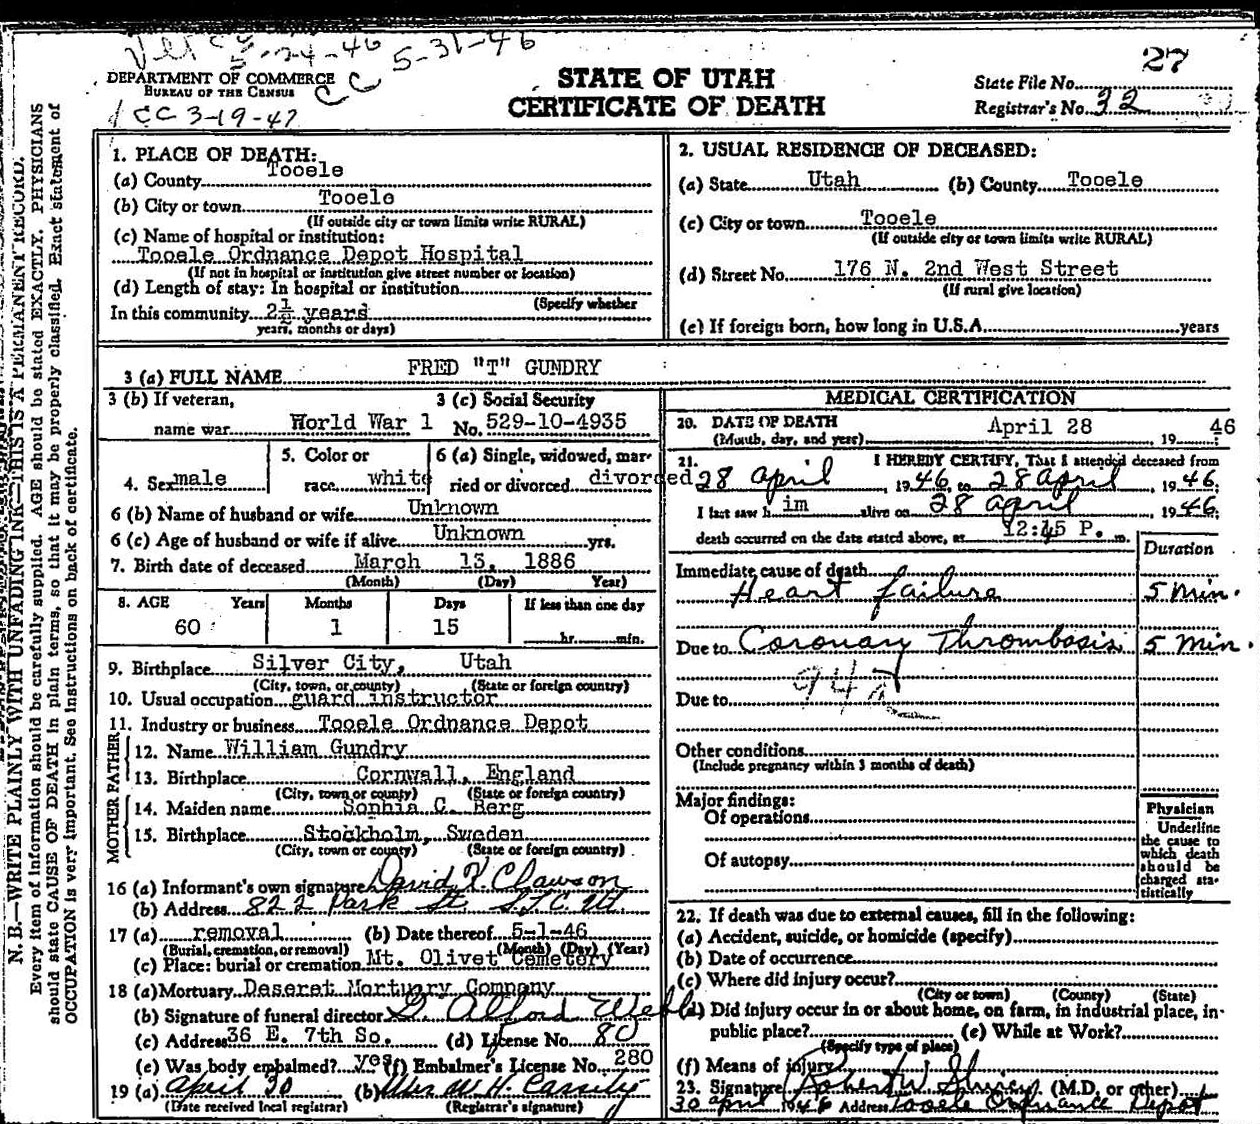 5-31-46
27
DEPARTMENT OF COMMERCE
BUREAU OF THE CENSUS
CC
CC 3-19-47
STATE OF UTAH
CERTIFICATE OF DEATH
State File No.
Registrar's No. 32
N. B.—WRITE PLAINLY WITH UNFADING INK—THIS IS A PERMANENT RECORD.
Every item of information should be carefully supplied. AGE should be stated EXACTLY. PHYSICIANS
should state CAUSE OF DEATH in plain terms, so that it may be properly classified. Exact statement of
OCCUPATION is very important. See instructions on back of certificate.
1. PLACE OF DEATH:
(a) County Tooele
(b) City or town Tooele
(If outside city or town limits write RURAL)
(c) Name of hospital or institution:
Tooele Ordnance Depot Hospital
(If not in hospital or institution give street number or location)
(d) Length of stay: In hospital or institution
(Specify whether
In this community 2½ years
years, months or days)
2. USUAL RESIDENCE OF DECEASED:
(a) State Utah (b) County Tooele
(c) City or town Tooele
(If outside city or town limits write RURAL)
(d) Street No. 176 N. 2nd West Street
(If rural give location)
(e) If foreign born, how long in U.S.A. years
3 (a) FULL NAME FRED "T" GUNDRY
3 (b) If veteran,
name war World War 1
3 (c) Social Security
No. 529-10-4935
4. Sex male
5. Color or
race white
6 (a) Single, widowed, mar-
ried or divorced divorced
6 (b) Name of husband or wife Unknown
6 (c) Age of husband or wife if alive Unknown yrs.
7. Birth date of deceased March 13, 1886
(Month) (Day) Year)
8. AGE Years Months Days If less than one day
60 1 15 hr. min.
9. Birthplace Silver City, Utah
(City, town, or county) (State or foreign country)
10. Usual occupation guard instructor
11. Industry or business Tooele Ordnance Depot
FATHER
12. Name William Gundry
13. Birthplace Cornwall, England
(City, town or county) (State or foreign country)
MOTHER
14. Maiden name Sophia C. Berg
15. Birthplace Stockholm, Sweden
(City, town or county) (State or foreign country)
16 (a) Informant's own signature David K. Clawson
(b) Address 822 Park St. S.L.C. Ut.
17 (a) removal (b) Date thereof 5-1-46
(Burial, cremation, or removal) (Month) (Day) (Year)
(c) Place: burial or cremation Mt. Olivet Cemetery
18 (a) Mortuary Deseret Mortuary Company
(b) Signature of funeral director
(c) Address 36 E. 7th So. (d) License No. 80
(e) Was body embalmed? yes (f) Embalmer's License No. 280
19 (a) April 30 (b) H. Cassity
(Date received local registrar) (Registrar's signature)
MEDICAL CERTIFICATION
20. DATE OF DEATH April 28 46
(Month, day, and year) 19
21. I HEREBY CERTIFY, That I attended deceased from
28 April, 1946, to 28 April, 1946;
I last saw him alive on 28 April, 1946;
death occurred on the date stated above, at 12:45 P. m.
Duration
Immediate cause of death
Heart failure 5 Min.
Due to Coronary Thrombosis 5 Min.
Due to
Other conditions
(Include pregnancy within 3 months of death)
Major findings:
Of operations
Of autopsy
Physician
Underline
the cause to
which death
should be
charged sta-
tistically
22. If death was due to external causes, fill in the following:
(a) Accident, suicide, or homicide (specify)
(b) Date of occurrence
(c) Where did injury occur?
(City or town) (County) (State)
(d) Did injury occur in or about home, on farm, in industrial place, in
public place? (e) While at Work?
(Specify type of place)
(f) Means of injury
23. Signature Robert W. (M.D. or other)
30 April 1946 Address Tooele Ordnance Depot